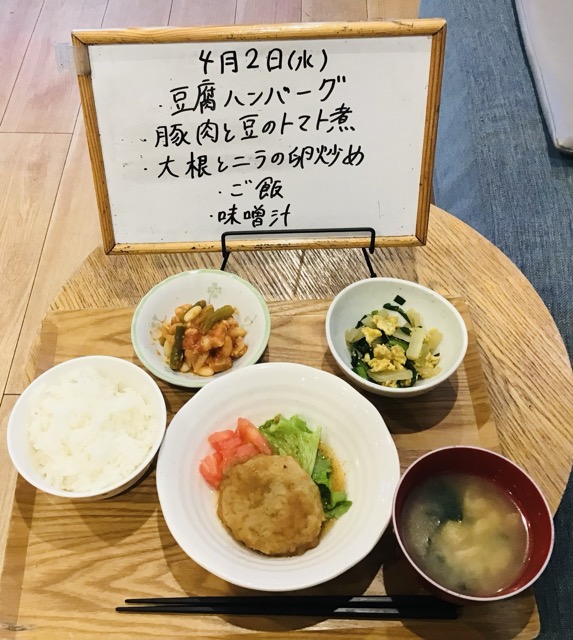 4月2日(水)
・豆腐ハンバーグ
・豚肉と豆のトマト煮
・大根とニラの卵炒め
・ご飯
・味噌汁